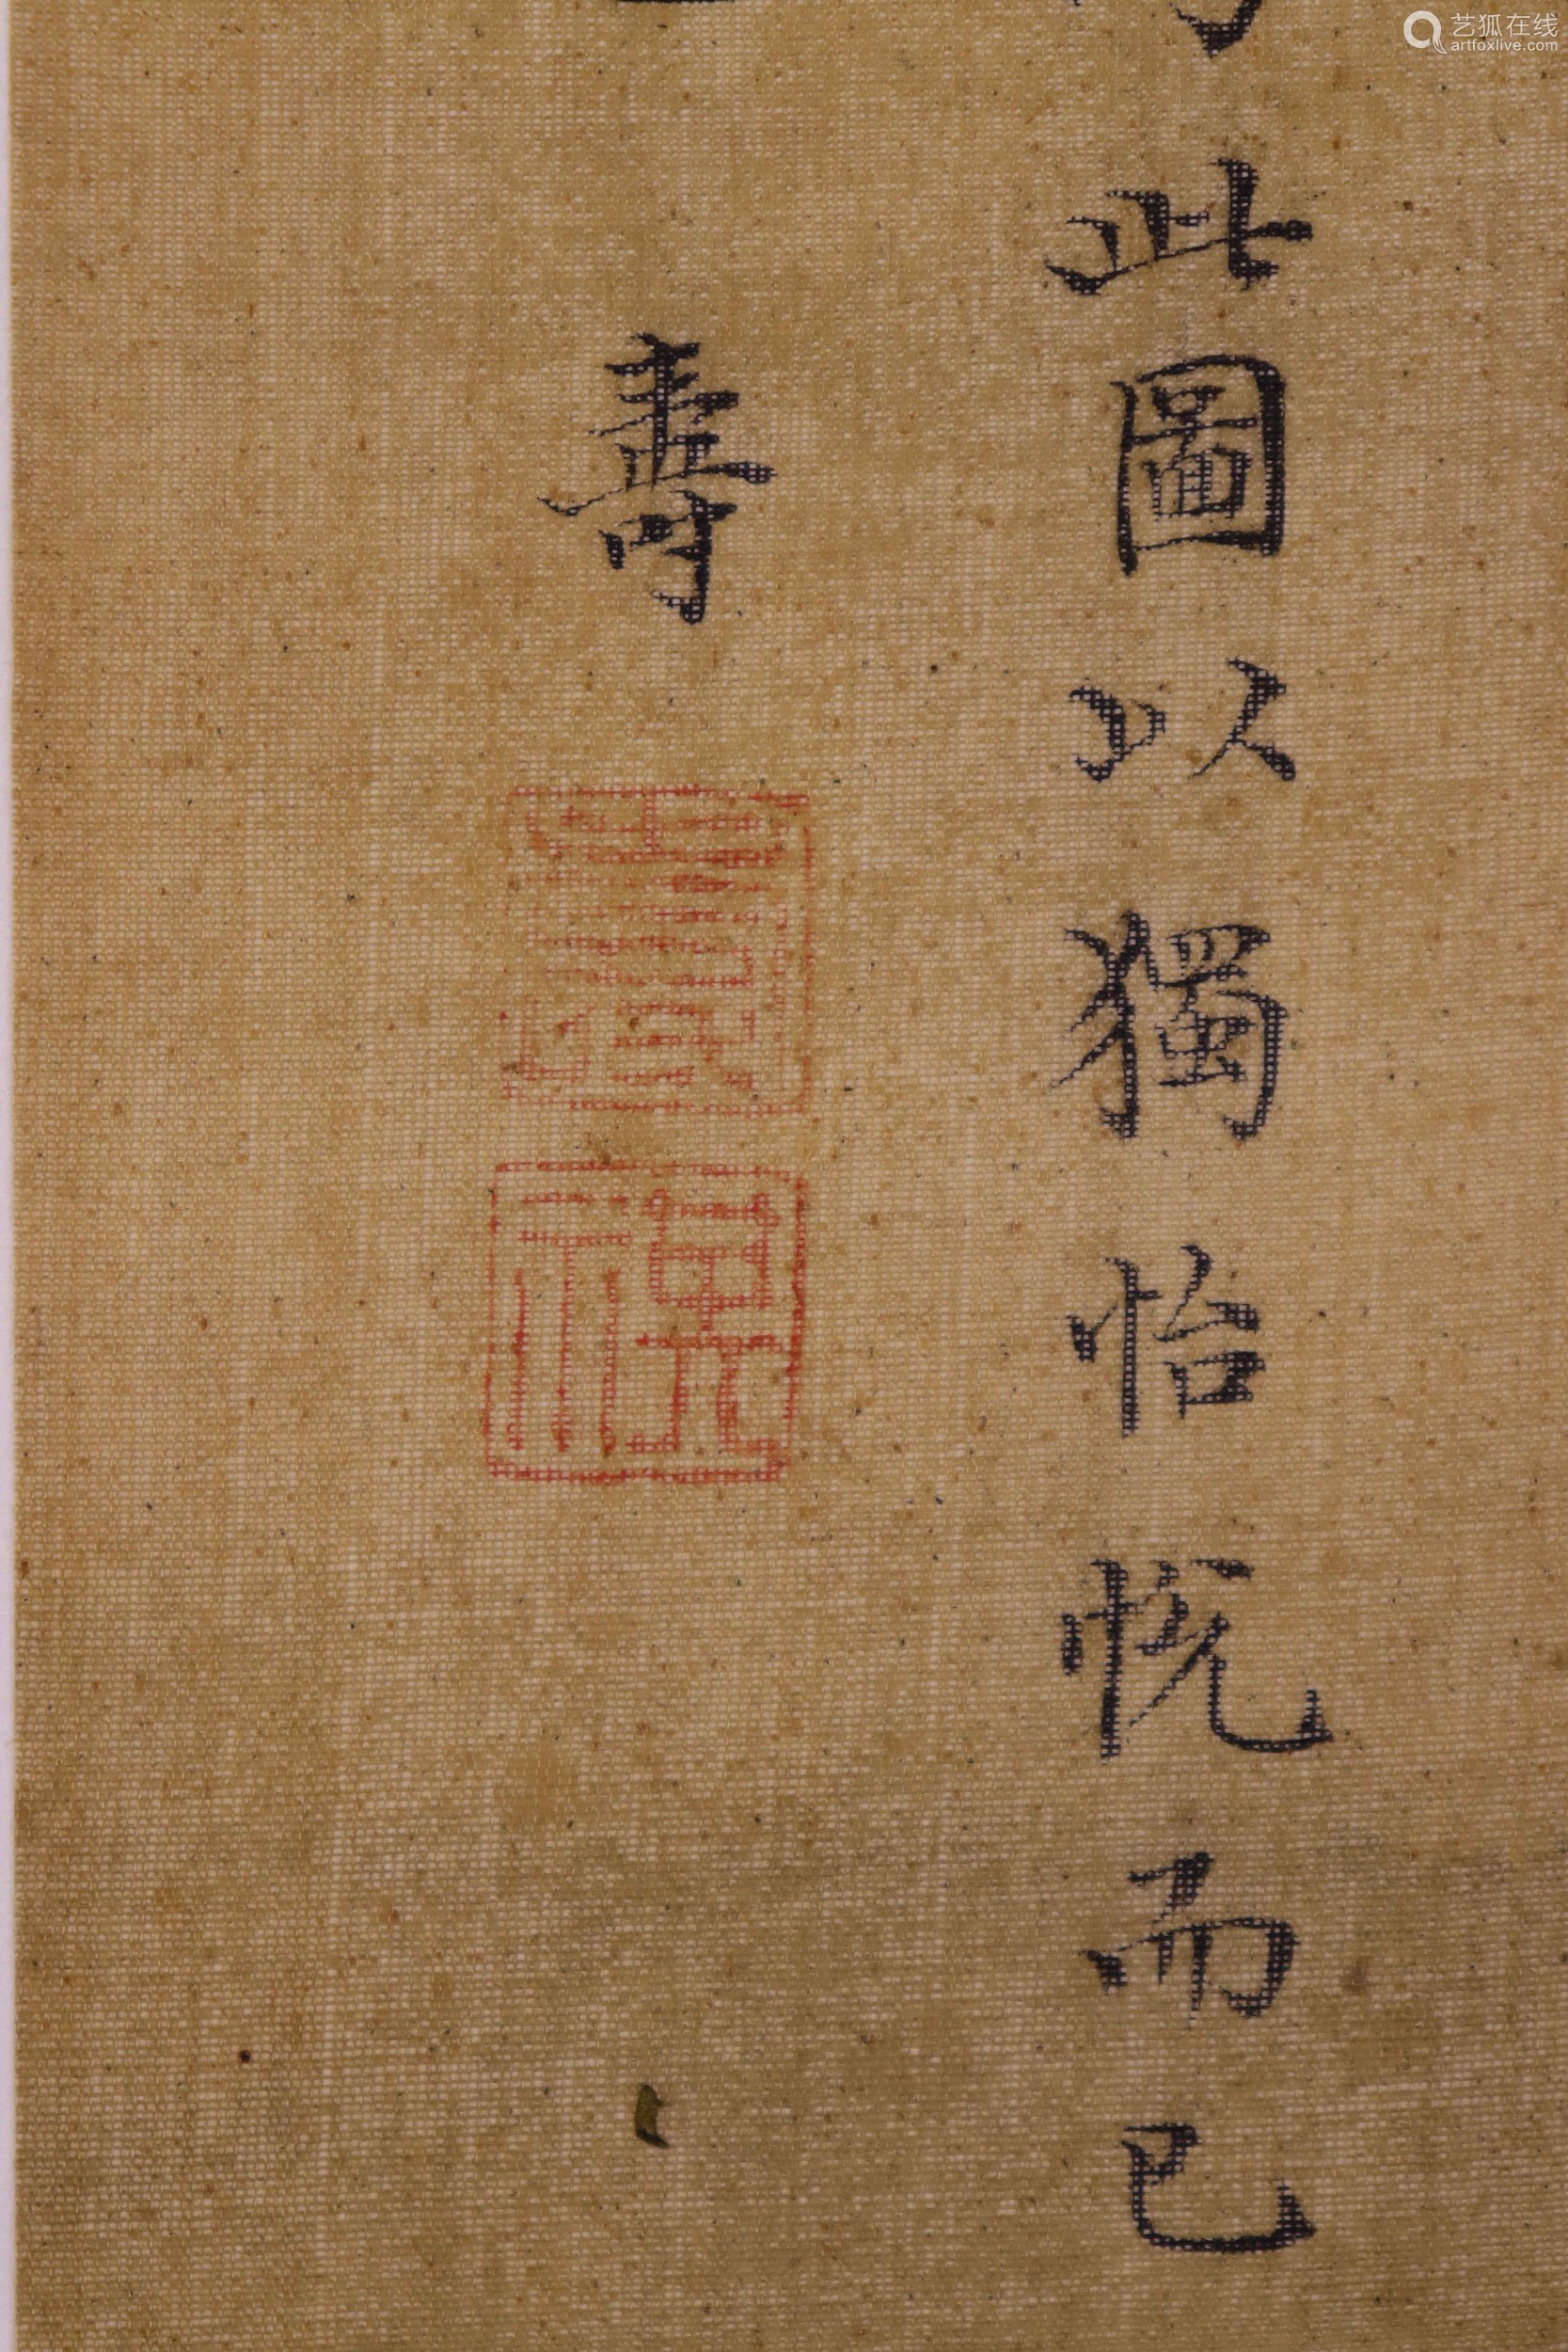 此圖以獨怡悅而已
壽
艺狐在线
artfoxlive.com